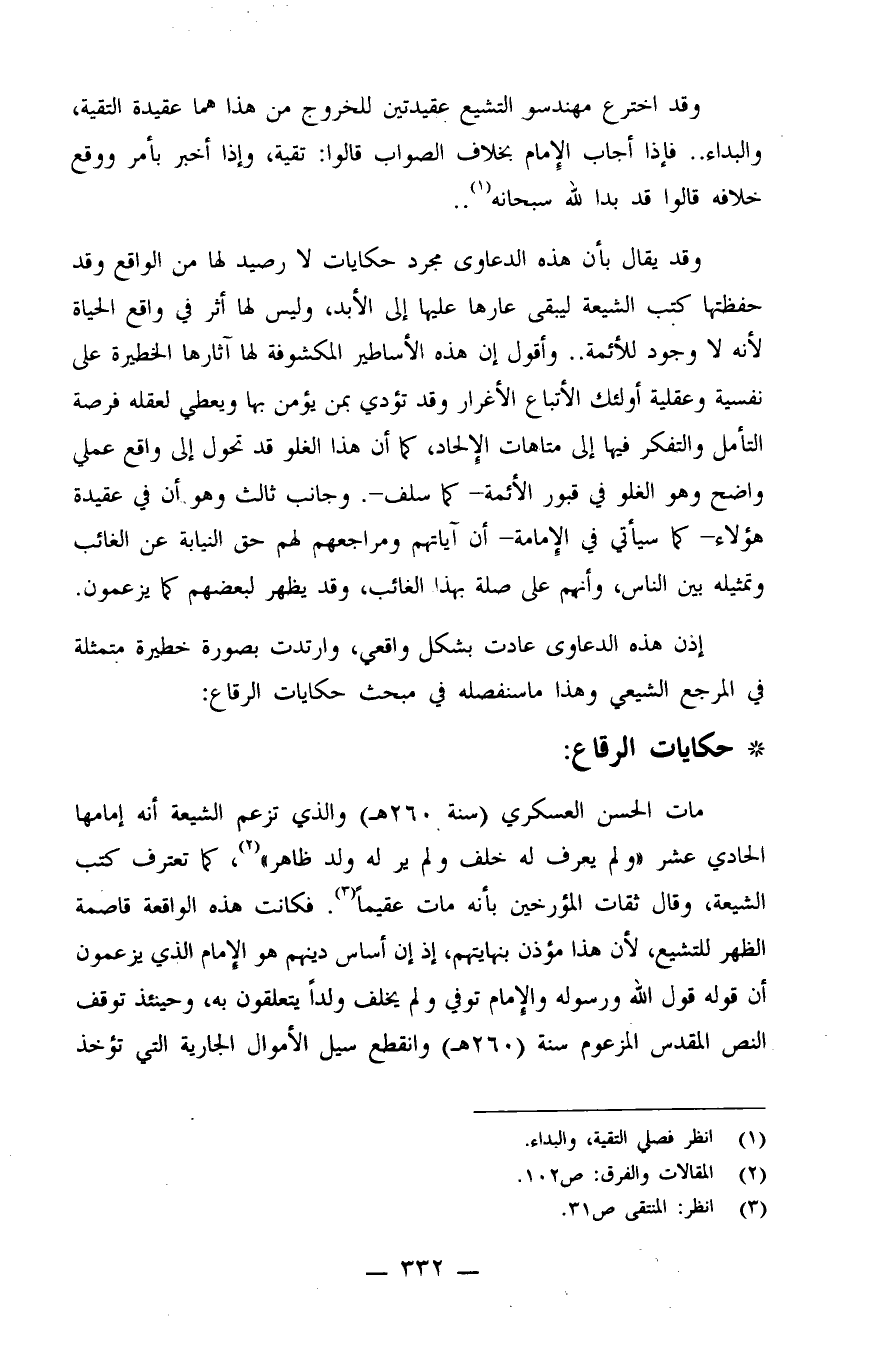 وقد اخترع مهندسو التشيع عقيدتين للخروج من هذا هما عقيدة التقية،
والبداء.. فإذا أجاب الإمام بخلاف الصواب قالوا: تقية، وإذا أخبر بأمر ووقع
خلافه قالوا قد بدا لله سبحانه(١)..
وقد يقال بأن هذه الدعاوى مجرد حكايات لا رصيد لها من الواقع وقد
حفظتها كتب الشيعة ليبقى عارها عليها إلى الأبد، وليس لها أثر في واقع الحياة
لأنه لا وجود للأئمة.. وأقول إن هذه الأساطير المكشوفة لها آثارها الخطيرة على
نفسية وعقلية أولئك الأتباع الأغرار وقد تؤدي بمن يؤمن بها ويعطي لعقله فرصة
التأمل والتفكر فيها إلى متاهات الإلحاد، كما أن هذا الغلو قد تحول إلى واقع عملي
واضح وهو الغلو في قبور الأئمة- كما سلف-. وجانب ثالث وهو أن في عقيدة
هؤلاء- كما سيأتي في الإمامة- أن آياتهم ومراجعهم لهم حق النيابة عن الغائب
وتمثيله بين الناس، وأنهم على صلة بهذا الغائب، وقد يظهر لبعضهم كما يزعمون.
إذن هذه الدعاوى عادت بشكل واقعي، وارتدت بصورة خطيرة متمثلة
في المرجع الشيعي وهذا ماسنفصله في مبحث حكايات الرقاع:
* حكايات الرقاع:
مات الحسن العسكري (سنة ٢٦٠هـ) والذي تزعم الشيعة أنه إمامها
الحادي عشر «ولم يعرف له خلف ولم ير له ولد ظاهر»(٢)، كما تعترف كتب
الشيعة، وقال ثقات المؤرخين بأنه مات عقيماً(٣). فكانت هذه الواقعة قاصمة
الظهر للتشيع، لأن هذا مؤذن بنهايتهم، إذ إن أساس دينهم هو الإمام الذي يزعمون
أن قوله قول الله ورسوله والإمام توفي ولم يخلف ولداً يتعلقون به، وحينئذ توقف
النص المقدس المزعوم سنة (٢٦٠هـ) وانقطع سيل الأموال الجارية التي تؤخذ
(١) انظر فصلي التقية، والبداء.
(٢) المقالات والفرق: ص١٠٢.
(٣) انظر: المنتقى ص٣١.
— ٣٣٢ —